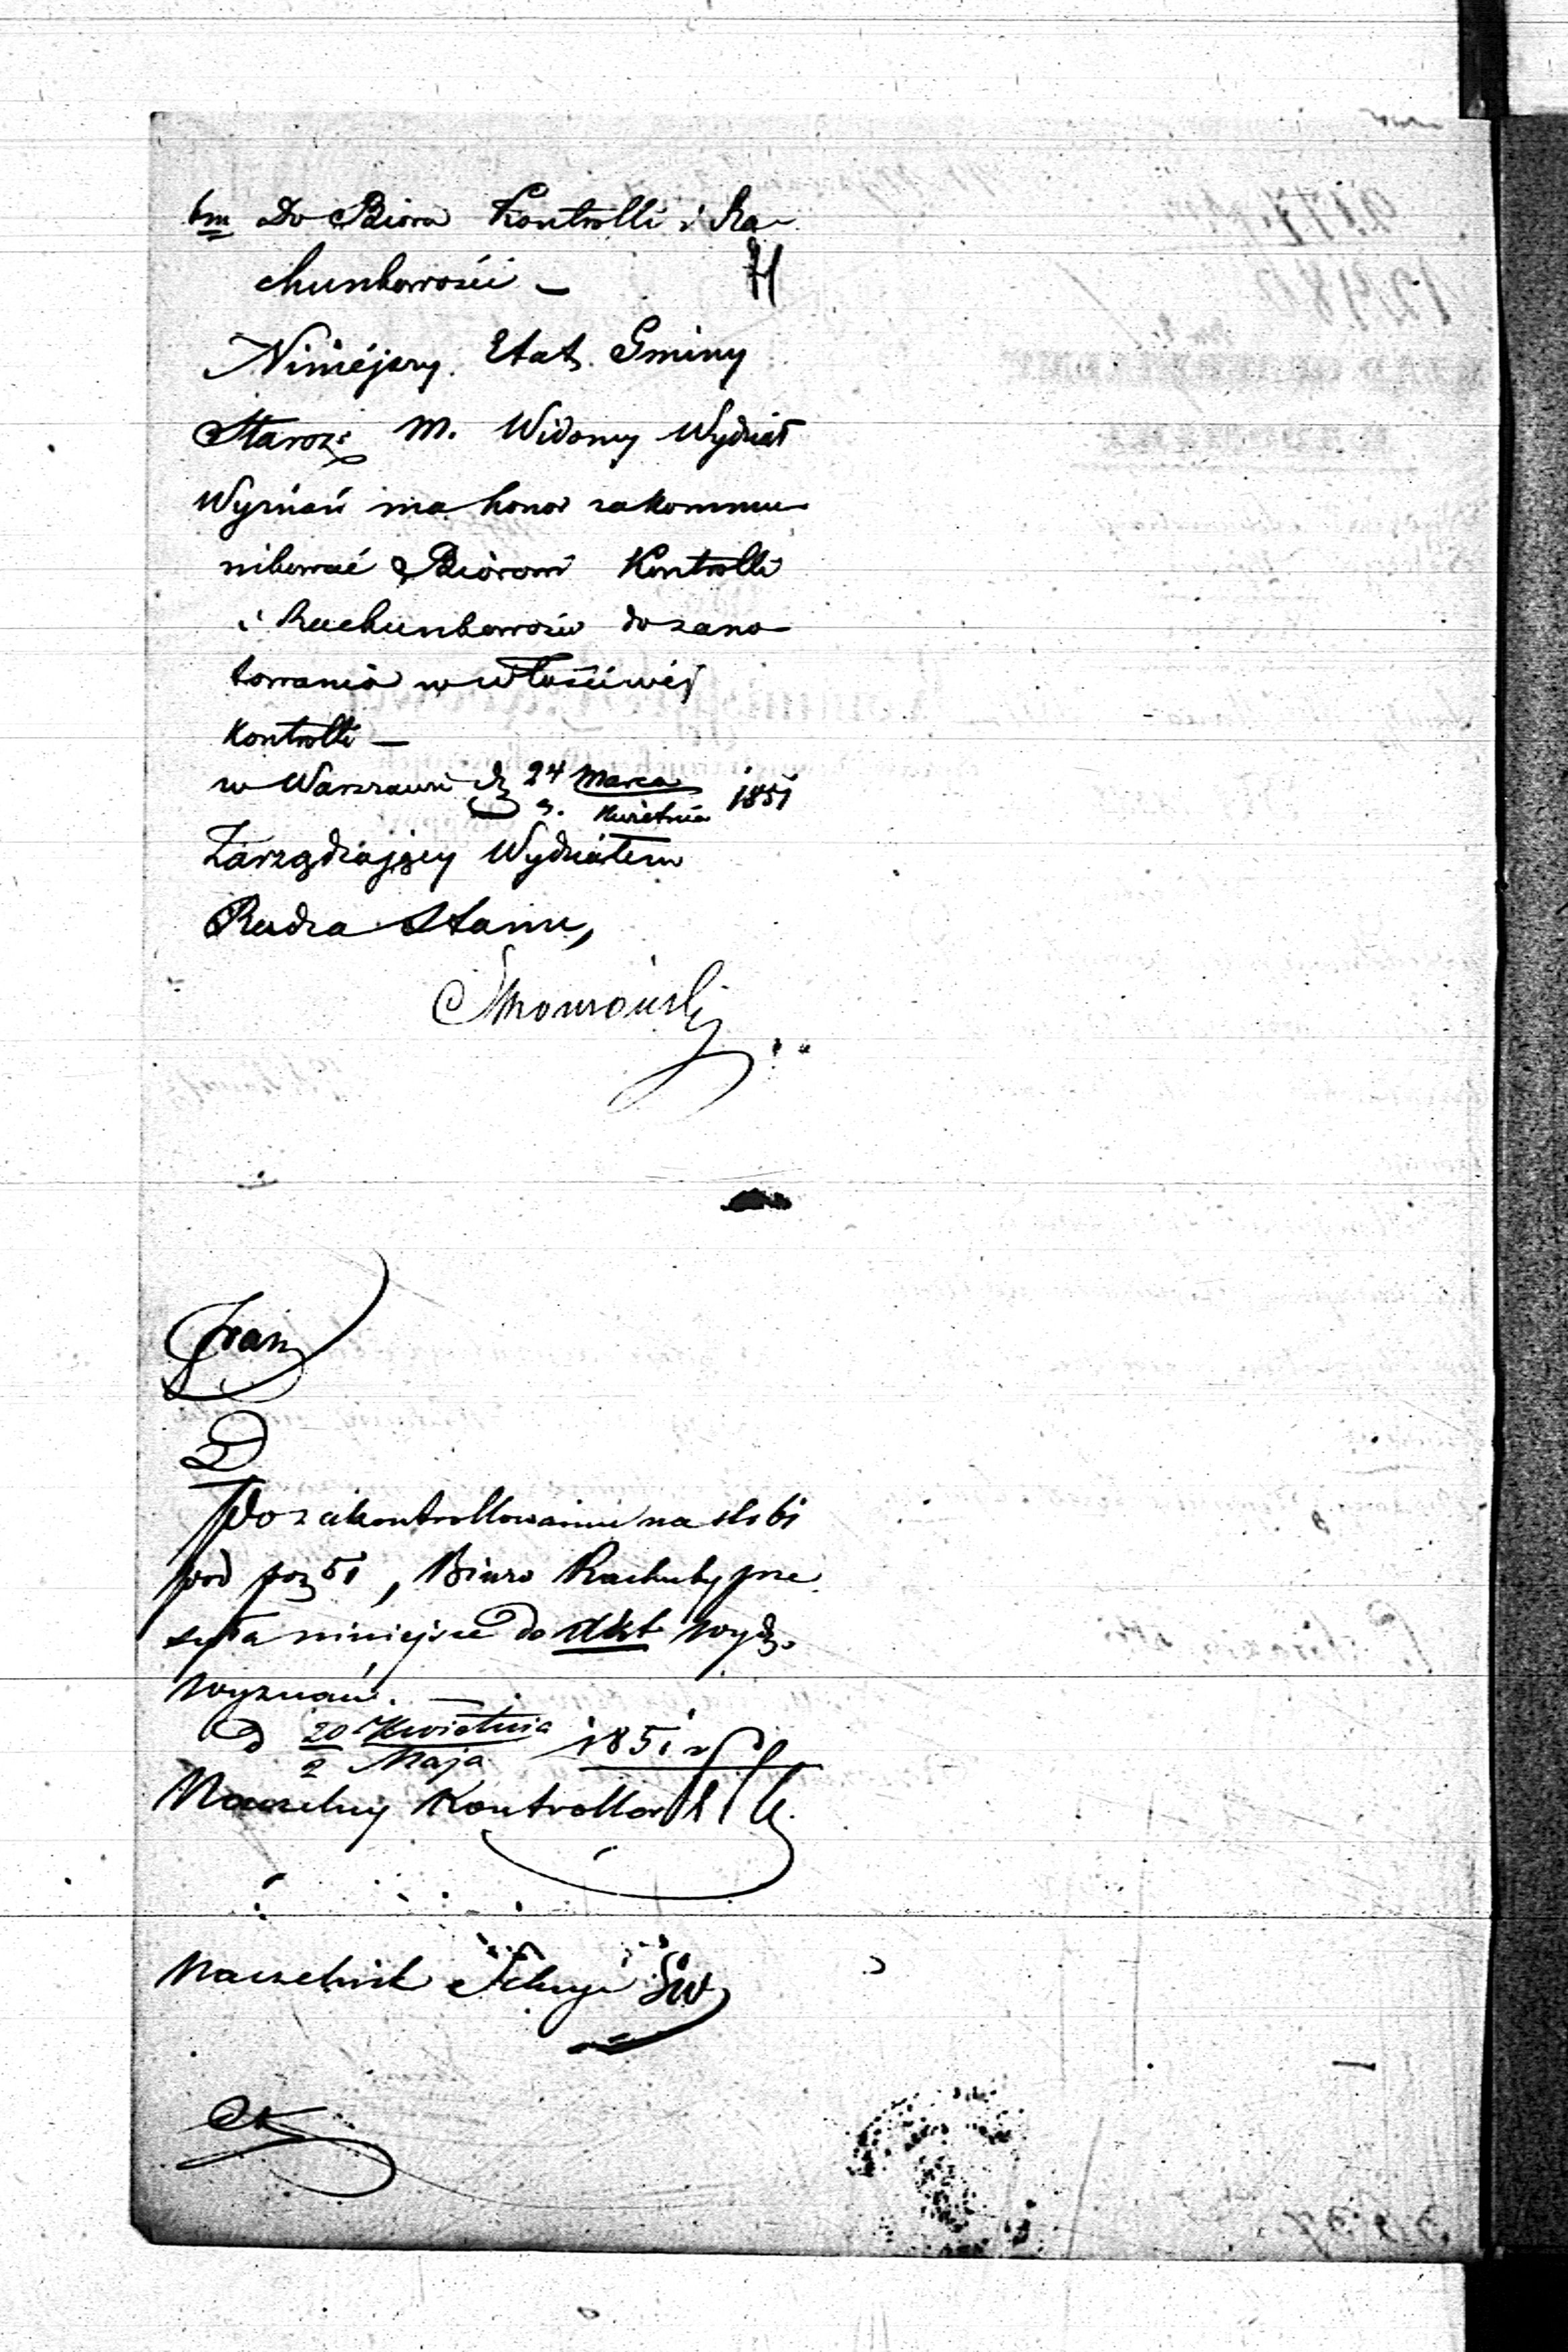 bm Do Biora Kontrolli i Ra-
chunkowości –
Niniéjszy Etat Gminy
Staroz: M. Widawy Wydział
Wyznań ma honor zakommu-
nikować Biórowi Kontrolli
i Rachunkowości do zano-
towania w właściwéj
Kontrolli –
w Warszawie d. 24 Marca 1851
5. Kwietnia
Zarządzający Wydziałem
Radca Stanu,
Do zakontrollowaniu na str 61
pod poz 51, Biuro Rachuby prze
syła niniejsze do Akt Wydz.
Wyznań. –
d 20 Kwietnia 1851 r
2 Maja
Naczelny Kontroller
Naczelnik Sekcyi